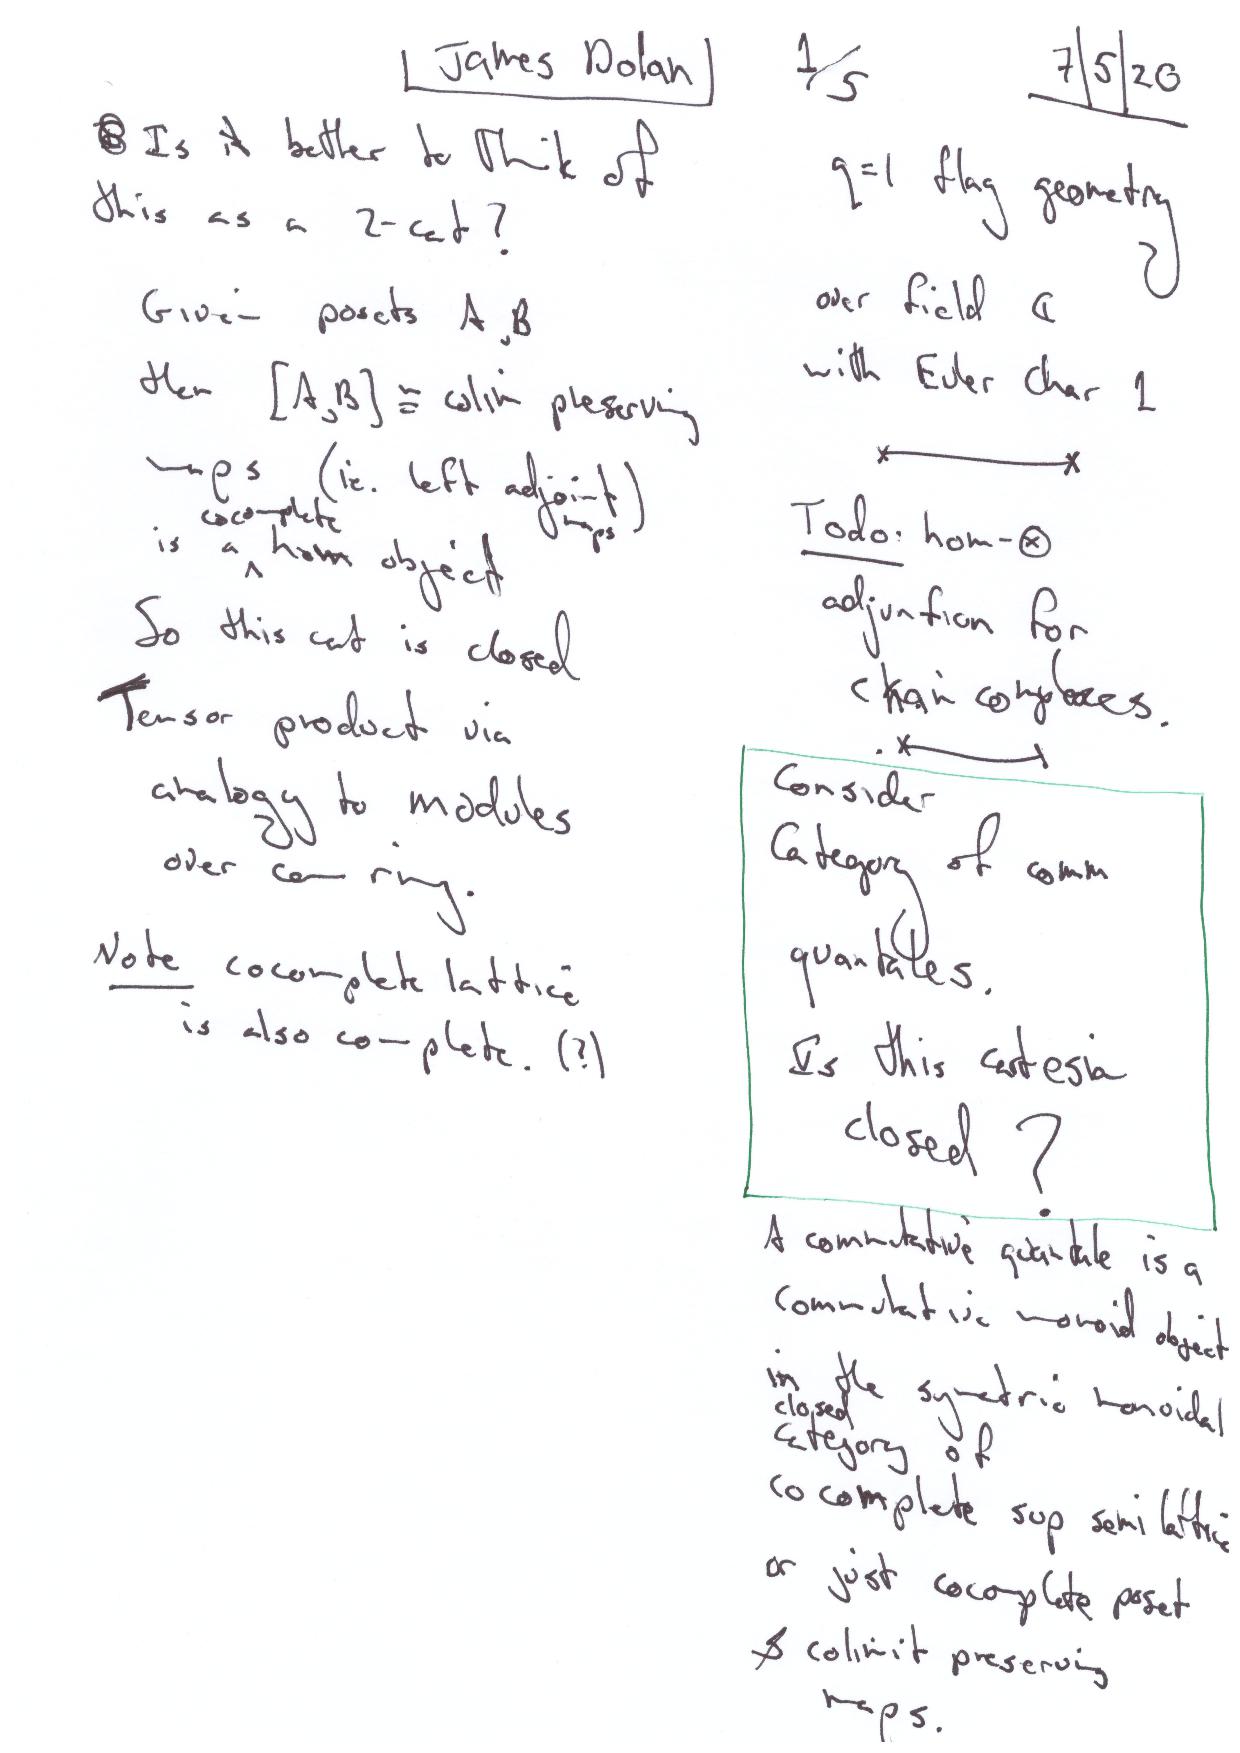 James Dolan
1/5
7/5/20
Is it better to think of
this as a 2-cat?
Given posets A, B
then [A,B] ≅ colim preserving
maps (ie. left adjoint maps)
is a cocomplete hom object
So this cat is closed
Tensor product via
analogy to modules
over com ring.
Note cocomplete lattice
is also complete. (?)
q=1 flag geometry
over field
with Euler char 1
Todo: hom-⊗
adjuntion for
chain complexes.
Consider
Category of comm
quantales.
Is this cartesian
closed ?
A commutative quantale is a
commutative monoid object
in the symetric monoidal
closed
category of
cocomplete sup semi lattice
or just cocomplete poset
& colimit preserving
maps.